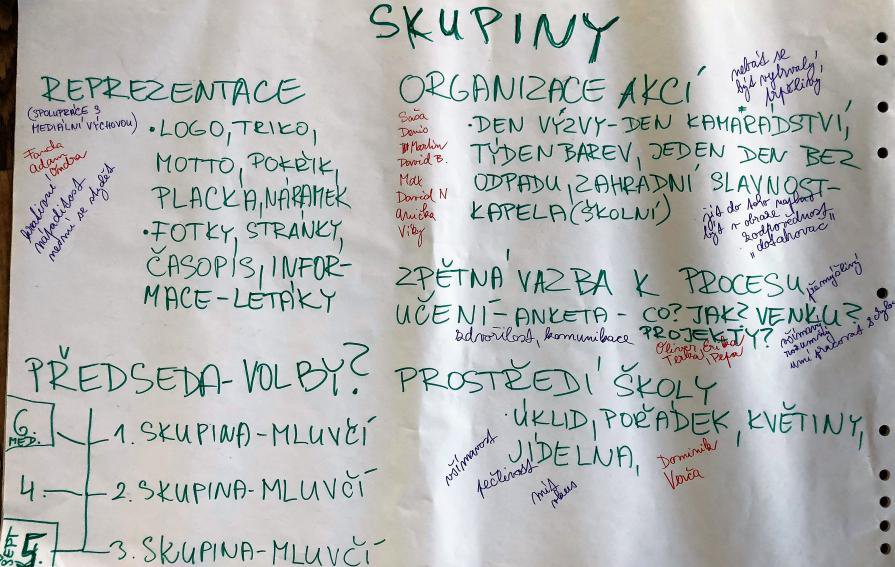 SKUPINY
REPREZENTACE
(SPOLUPRÁCE S
MEDIÁLNÍ VÝCHOVOU)
• LOGO, TRIKO,
MOTTO, POKŘIK,
PLACKA, NÁRAMEK
• FOTKY, STRÁNKY,
ČASOPIS, INFOR-
MACE - LETÁKY
Fanda
Adam
Ondra
kreativní
nápaditost
nesmí se stydět
ORGANIZACE AKCÍ
nebát se
být vytrvalý,
trpělivý
Saša
Denis
Martin
David B.
Max
David N
Anička
Viky
• DEN VÝZVY - DEN KAMARÁDSTVÍ,
TÝDEN BAREV, JEDEN DEN BEZ
ODPADU, ZAHRADNÍ SLAVNOST -
KAPELA (ŠKOLNÍ)
jít do toho naplno
být v obraze
zodpovědnost
"dotahovač"
ZPĚTNÁ VAZBA K PROCESU
UČENÍ - ANKETA - CO? JAK? VENKU?
PROJEKTY?
zdvořilost, komunikace
přemýšlivý
všímavý
rozumný
umí pracovat s chybou
Oliver, Erika
Terka, Pepa
PŘEDSEDA - VOLBY?
6.
MED.
1. SKUPINA - MLUVČÍ
4.
2. SKUPINA - MLUVČÍ
5.
3. SKUPINA - MLUVČÍ
PROSTŘEDÍ ŠKOLY
ÚKLID, POŘÁDEK, KVĚTINY,
JÍDELNA,
všímavost
pečlivost
Dominik
Verča